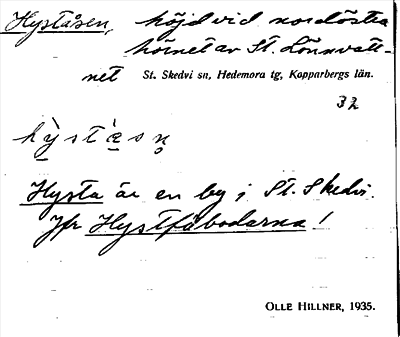 Hyståsen, höjd vid nordöstra
hörnet av St. Lönnvatt-
net St. Skedvi sn, Hedemora tg, Kopparbergs län.
32
hỳ̠stà̠sn̥
Hysta är en by i St. Skedvi.
Jfr Hystfäbodarna!
OLLE HILLNER, 1935.